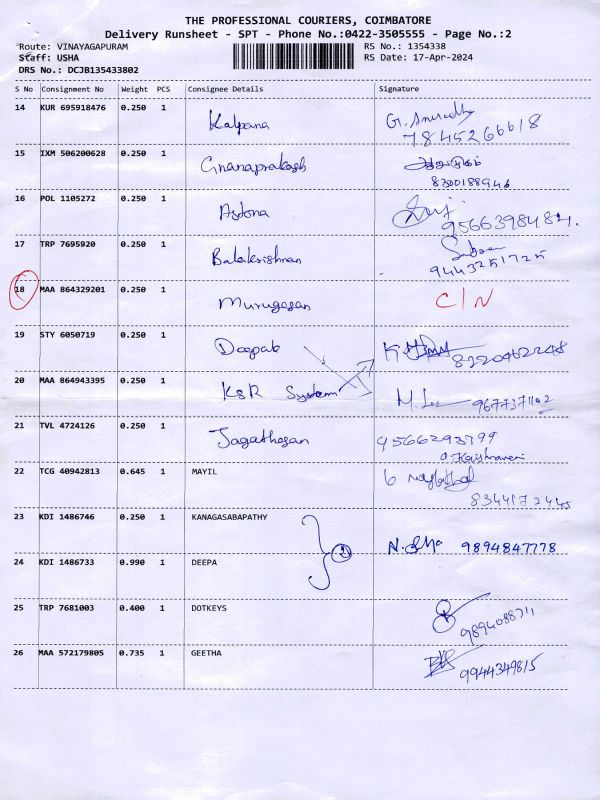 THE PROFESSIONAL COURIERS, COIMBATORE
Delivery Runsheet - SPT - Phone No.:0422-3505555 - Page No.:2
Route: VINAYAGAPURAM RS No.: 1354338
Staff: USHA RS Date: 17-Apr-2024
DRS No.: DCJB135433802
S No Consignment No Weight PCS Consignee Details Signature
14 KUR 695918476 0.250 1 Kalpana G. Anuradha
7845266618
15 IXM 506200628 0.250 1 Gnanaprakash
8300188946
16 POL 1105272 0.250 1
9566398484.
17 TRP 7695920 0.250 1 Balakrishnan
9443251725
18 MAA 864329201 0.250 1 Murugesan C/N
19 STY 6050719 0.250 1 Deepak 8220462248
20 MAA 864943395 0.250 1 KSR System 9677371102
21 TVL 4724126 0.250 1 Jagathesan 9566293799
22 TCG 40942813 0.645 1 MAYIL
8344172445
23 KDI 1486746 0.250 1 KANAGASABAPATHY
2 9894847778
24 KDI 1486733 0.990 1 DEEPA
25 TRP 7681003 0.400 1 DOTKEYS
9894088711
26 MAA 572179805 0.735 1 GEETHA
9944349815